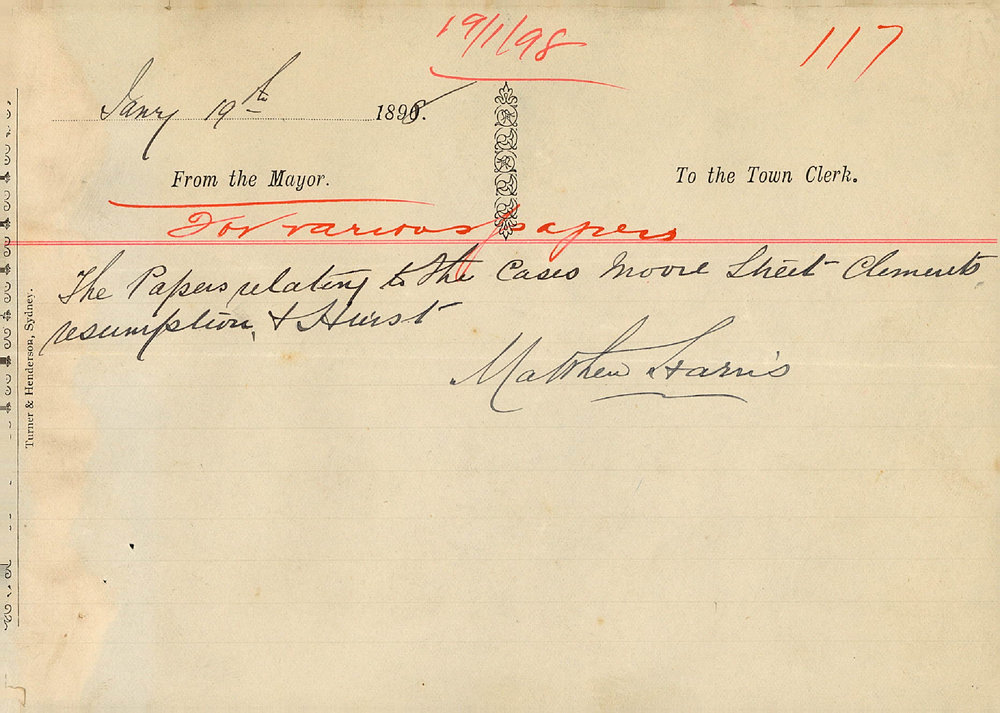 19/1/98
117
Jany 19th 1898.
From the Mayor.
To the Town Clerk.
For various papers
The Papers relating to the Cases Moore Street Clements
resumption, & Hurst
Matthew Harris
Turner & Henderson, Sydney.